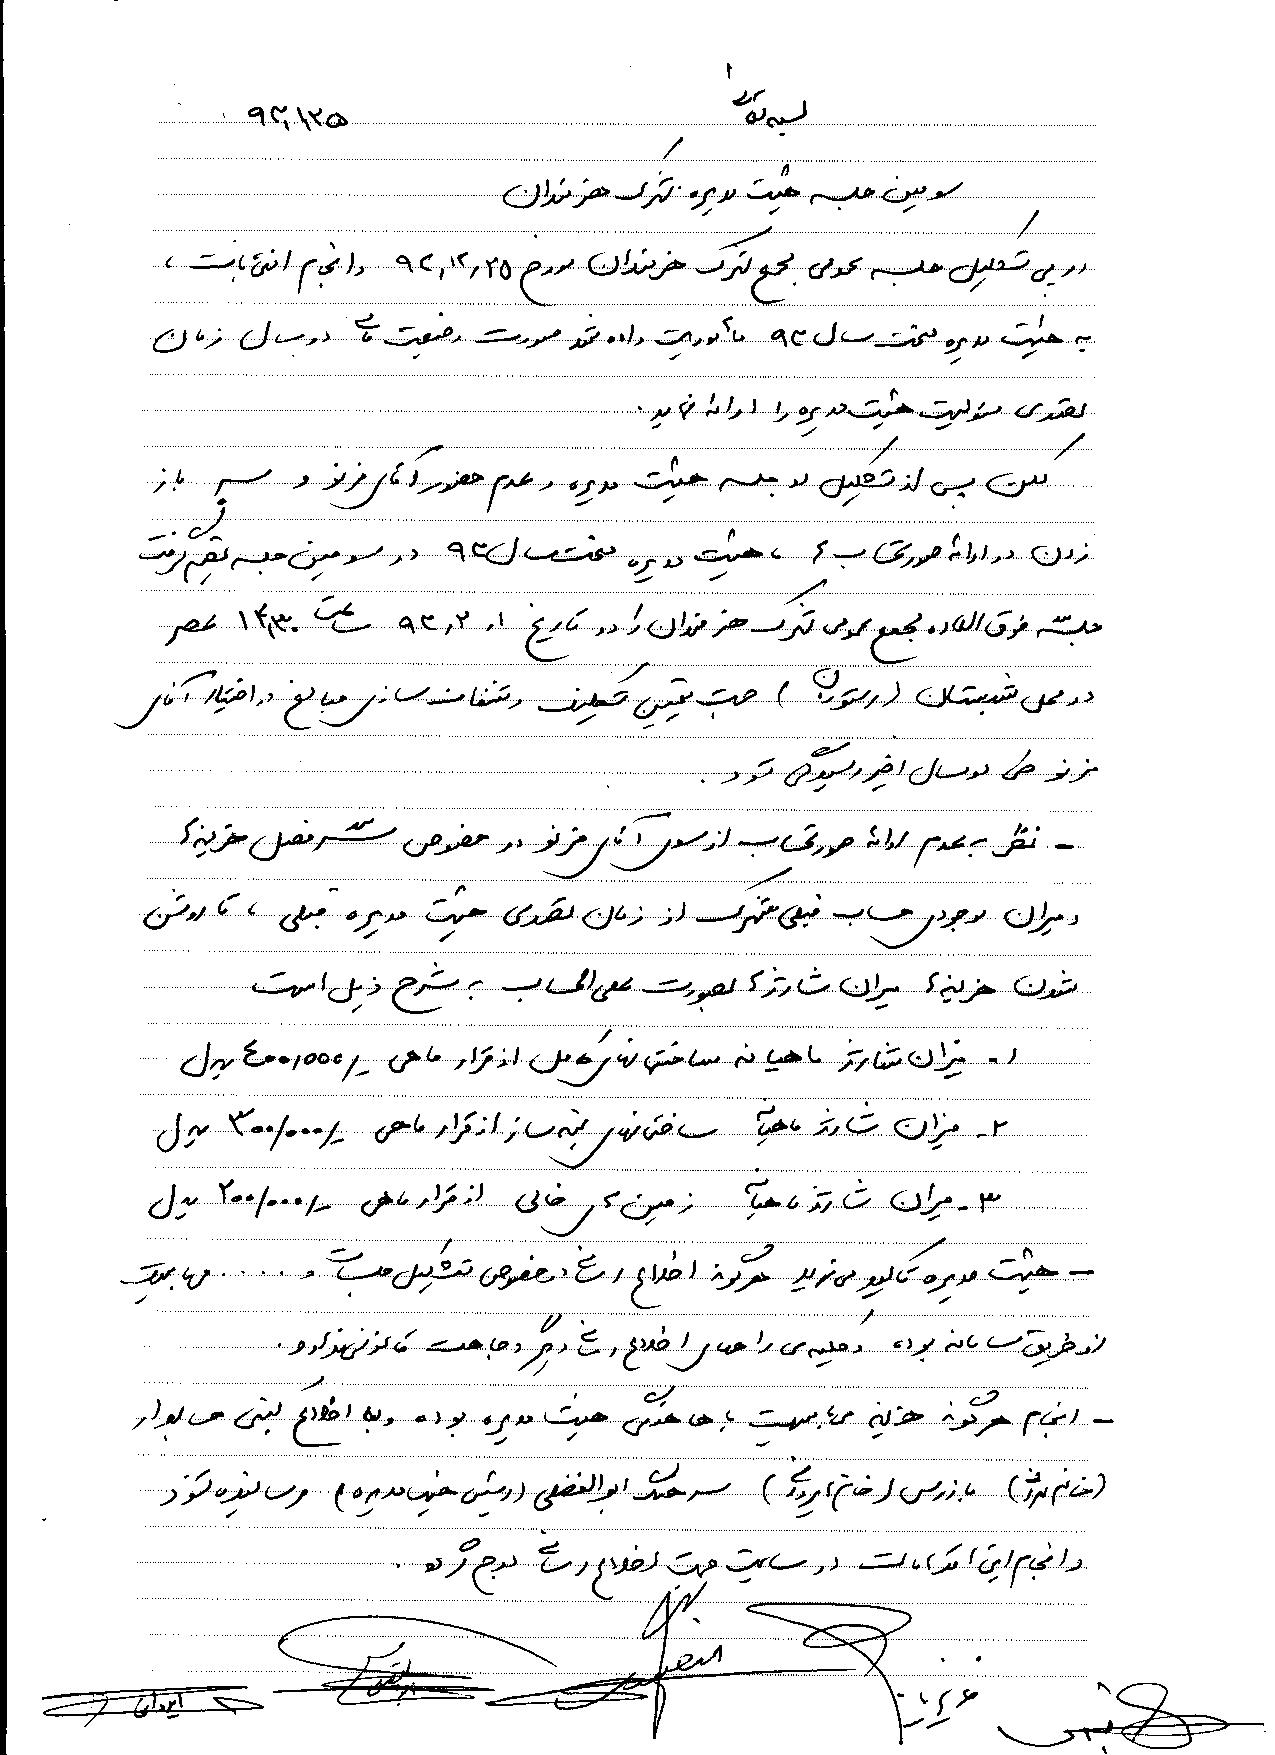 بسمه تعالی
۹۳/۱/۲۵
سومین جلسه هیئت مدیره شهرک هنرمندان
در پی تشکیل جلسه عمومی مجمع شهرک هنرمندان مورخ ۹۲/۱۲/۲۵ و انجام انتخابات ،
به هیئت مدیره منتخب سال ۹۳ مأموریت داده شد صورت وضعیت مالی دو سال زمان
تصدی مسئولیت هیئت مدیره را ارائه نماید .
لکن پس از تشکیل دو جلسه هیئت مدیره و عدم حضور آقای فرنو و سر باز
زدن در ارائه صورتحساب ها ، هیئت مدیره منتخب سال ۹۳ در سومین جلسه تصمیم گرفت
جلسه فوق العاده مجمع عمومی شهرک هنرمندان را در تاریخ ۹۳/۲/۱ ساعت عصر
در محل شبستان (رستوران) جهت تعیین تکلیف و شفاف سازی مبالغ در اختیار آقای
فرنو طی دو سال اخیر رسیدگی شود .
- نظر به عدم ارائه صورتحساب از سوی آقای فرنو در خصوص شرح مفصل هزینه ها
و میزان موجودی حساب قبلی شهرک از زمان تصدی هیئت مدیره قبلی ، تا روشن
شدن هزینه ها میزان شارژ ها بصورت علی الحساب به شرح ذیل است
۱- میزان شارژ ماهیانه ساختمانهای کامل از قرار ماهی ۴۰۰/۰۰۰/- ریال
۲- میزان شارژ ماهیانه ساختمانهای نیمه ساز از قرار ماهی ۳۰۰/۰۰۰/- ریال
۳- میزان شارژ ماهیانه زمین های خالی از قرار ماهی ۲۰۰/۰۰۰/- ریال
- هیئت مدیره تاکید می نماید هرگونه اطلاع رسانی در خصوص تشکیل جلسات و .... می بایست
از طریق سامانه بوده و کلیه ی راههای اطلاع رسانی دیگر وجاهت قانونی ندارد .
- انجام هرگونه هزینه می بایست با هماهنگی هیئت مدیره بوده و به اطلاع کتبی حسابدار
بازرس (خانم ایروانی) سرهنگ ابوالفضلی (رئیس هیئت مدیره) رسانیده شود
و انجام این اقدامات در سایت جهت اطلاع رسانی درج گردد .
ایروانی